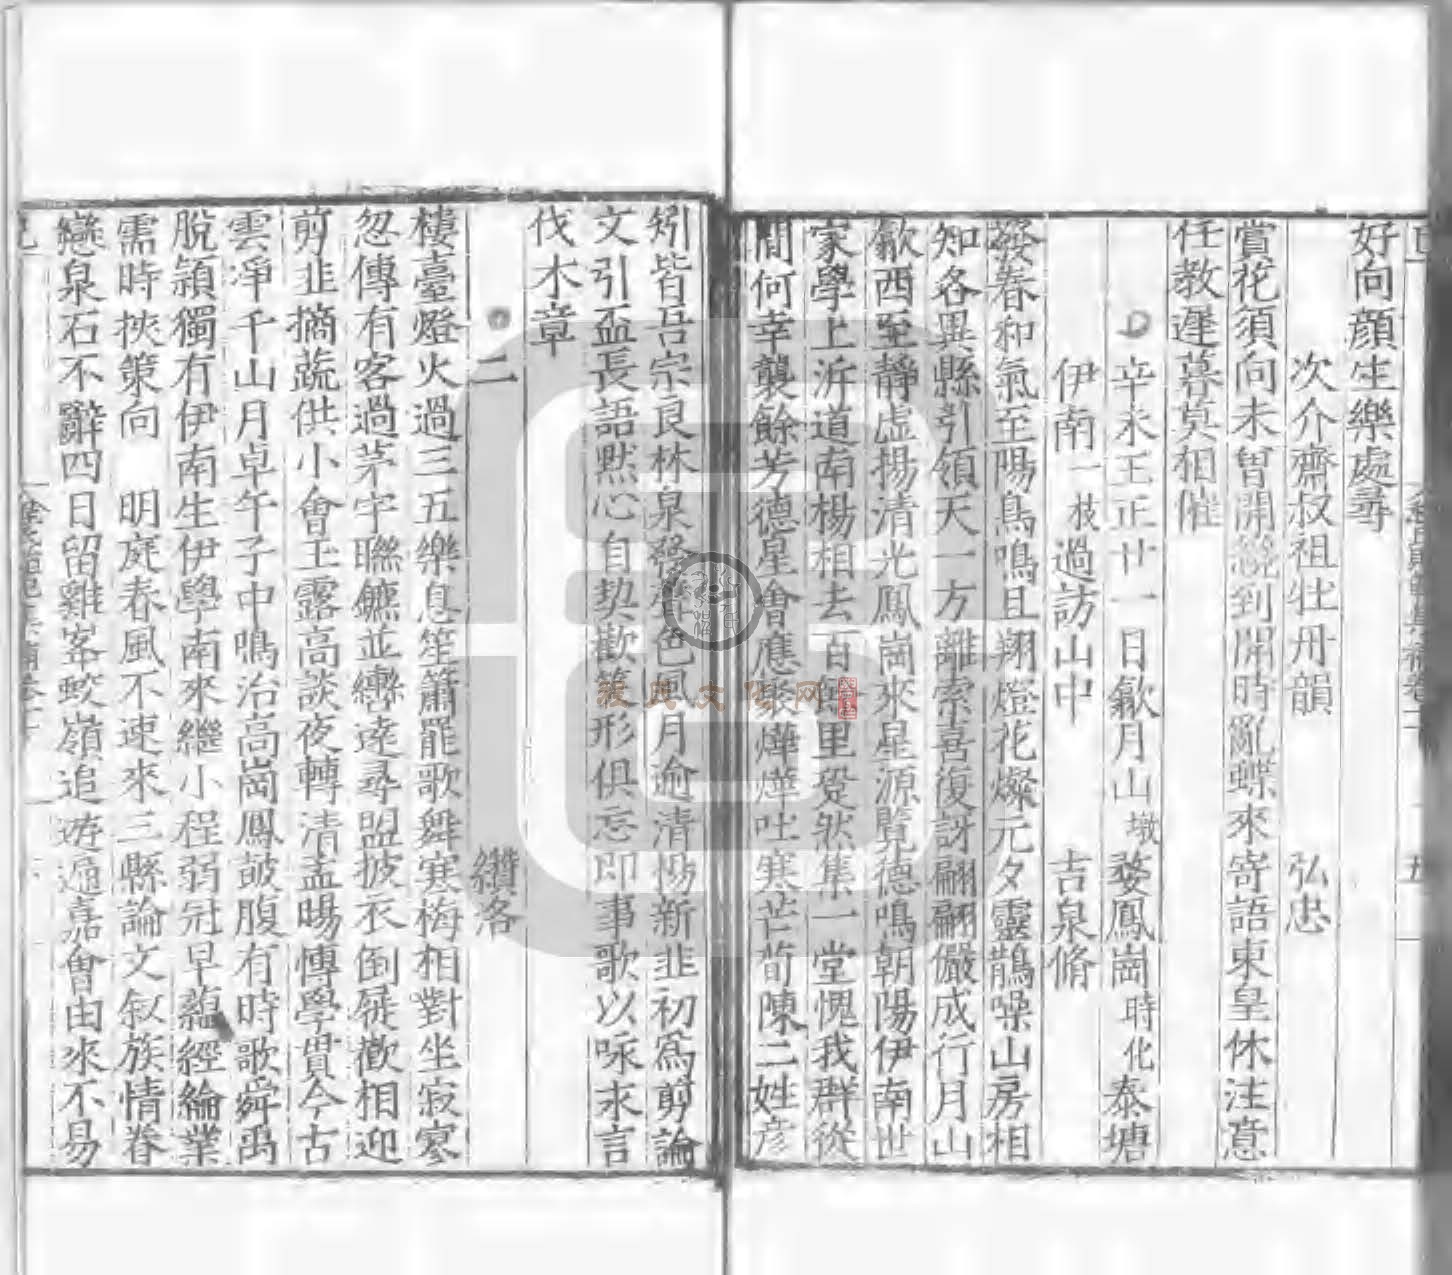 好向顔生樂處尋
次介齋叔祖牡丹韻　弘忠
賞花須向未曾開到開時亂蝶來寄語東皇休注意
任教遲暮莫相催
辛未王正廿一日歙月山墩婺鳳崗時化泰塘
伊南一枝過訪山中　吉泉脩
發春和氣至陽鳥鳴且翔燈花燦元夕靈鵲噪山房相
知各異縣引領天一方離索喜復訝翩翩儼成行月山
歙西至靜虚揚清光鳳崗來星源覽德鳴朝陽伊南世
家學上泝道南楊相去百里跫然集一堂愧我群從
間何幸襲餘芳德星會應聚燁燁吐寒芒荀陳二姓彦
矧皆吾宗良林泉發色風月逾清揚新韭初爲剪論
文引盃長語黙心自契歡笑形俱忘即事歌以咏永言
伐木章
二　纘洛
樓臺燈火過三五樂息笙簫罷歌舞寒梅相對坐寂寥
忽傳有客過茅宇聯鑣並轡遠尋盟披衣倒屣歡相迎
剪韭摘蔬供小會玉露高談夜轉清孟暘愽學貫今古
雲凈千山月卓午子中鳴治高崗鳳鼓腹有時歌舜禹
脫穎獨有伊南生伊學南來繼小程弱冠早蘊經綸業
需時挾策向明庭春風不速來三縣論文叙族情眷
戀泉石不辭四日留雞峯蛟嶺追遊遍嘉會由來不易